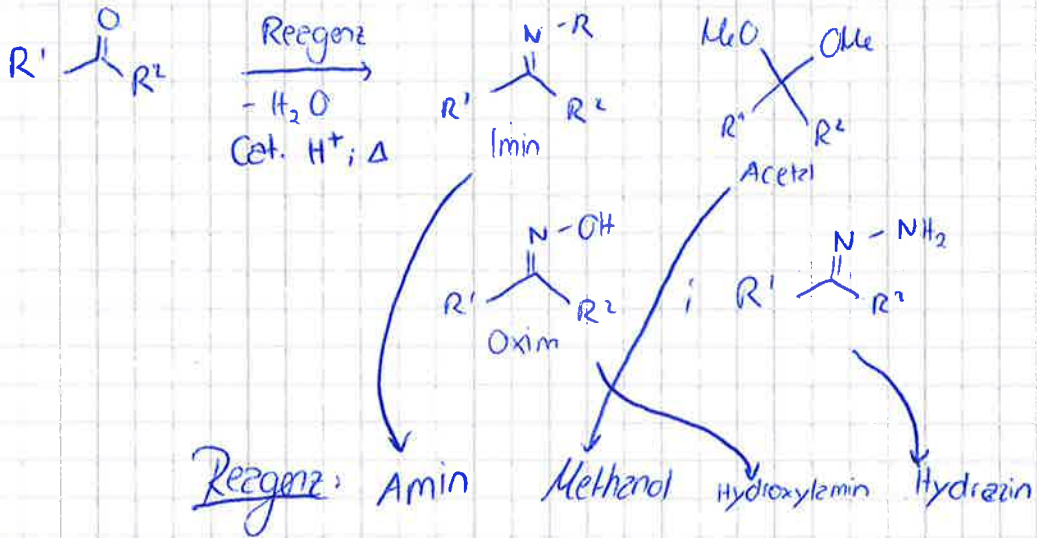 O
R¹ R²
Reagenz
- H₂O
Cat. H⁺; Δ
N-R
R¹ R²
Imin
MeO OMe
R¹ R²
Acetal
N-OH
R¹ R²
Oxim
;
N-NH₂
R¹ R²
Reagenz: Amin Methanol Hydroxylamin Hydrazin